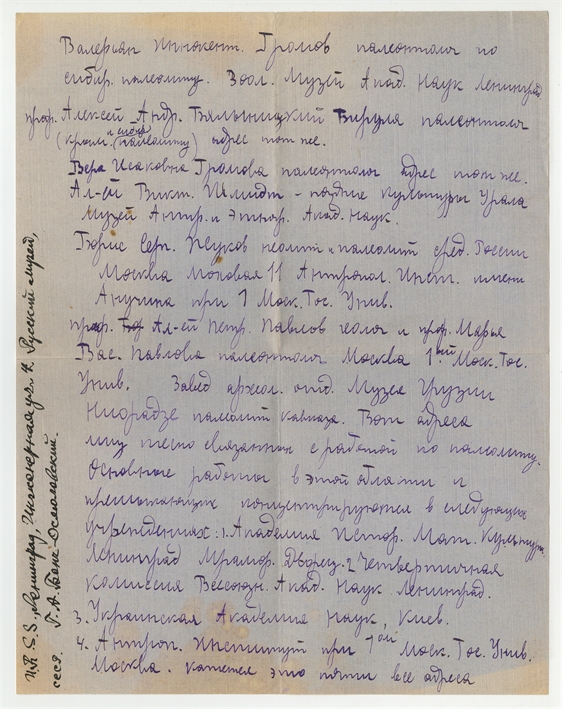 Валериан Иннокент. Громов палеонтолог по
сибир. палеолиту. Зоол. Музей Акад. Наук Ленинград
проф. Алексей Андр. Бялыницкий Бируля палеонтолог
(крым. палеолиту) адрес тот же.
Вера Исаковна Громова палеонтолог адрес тот же.
Ал-ей Викт. Шмидт - поздние культуры Урала
Музей Антр. и Этногр. Акад. Наук.
Борис Серг. Жуков неолит и палеолит сред. России
Москва Моховая 11 Антропол. Инст. имени
Анучина при 1 Моск. Гос. Унив.
проф. Ал-ей Петр. Павлов геолог и проф. Марья
Вас. Павлова палеонтолог Москва 1ый Моск. Гос.
Унив. Завед археол. отд. Музея Грузии
Ниорадзе палеолит кавказа. Вот адреса
лиц тесно связанных с работой по палеолиту.
Основные работы в этой области и
прилежащих концентрируются в следующих
учреждениях: 1. Академия Истор. Мат. Культуры
Ленинград Мрамор. Дворец. 2 Четвертичная
комиссия Всесоюзн. Акад. Наук Ленинград.
3. Украинская Академия Наук, Киев.
4. Антроп. Институт при 1ом Моск. Гос. Унив.
Москва. кажется это почти все адреса
Ленинград, Инженерная ул. 4, Русский музей,
СССР. Г. А. Бонч-Осмоловский.